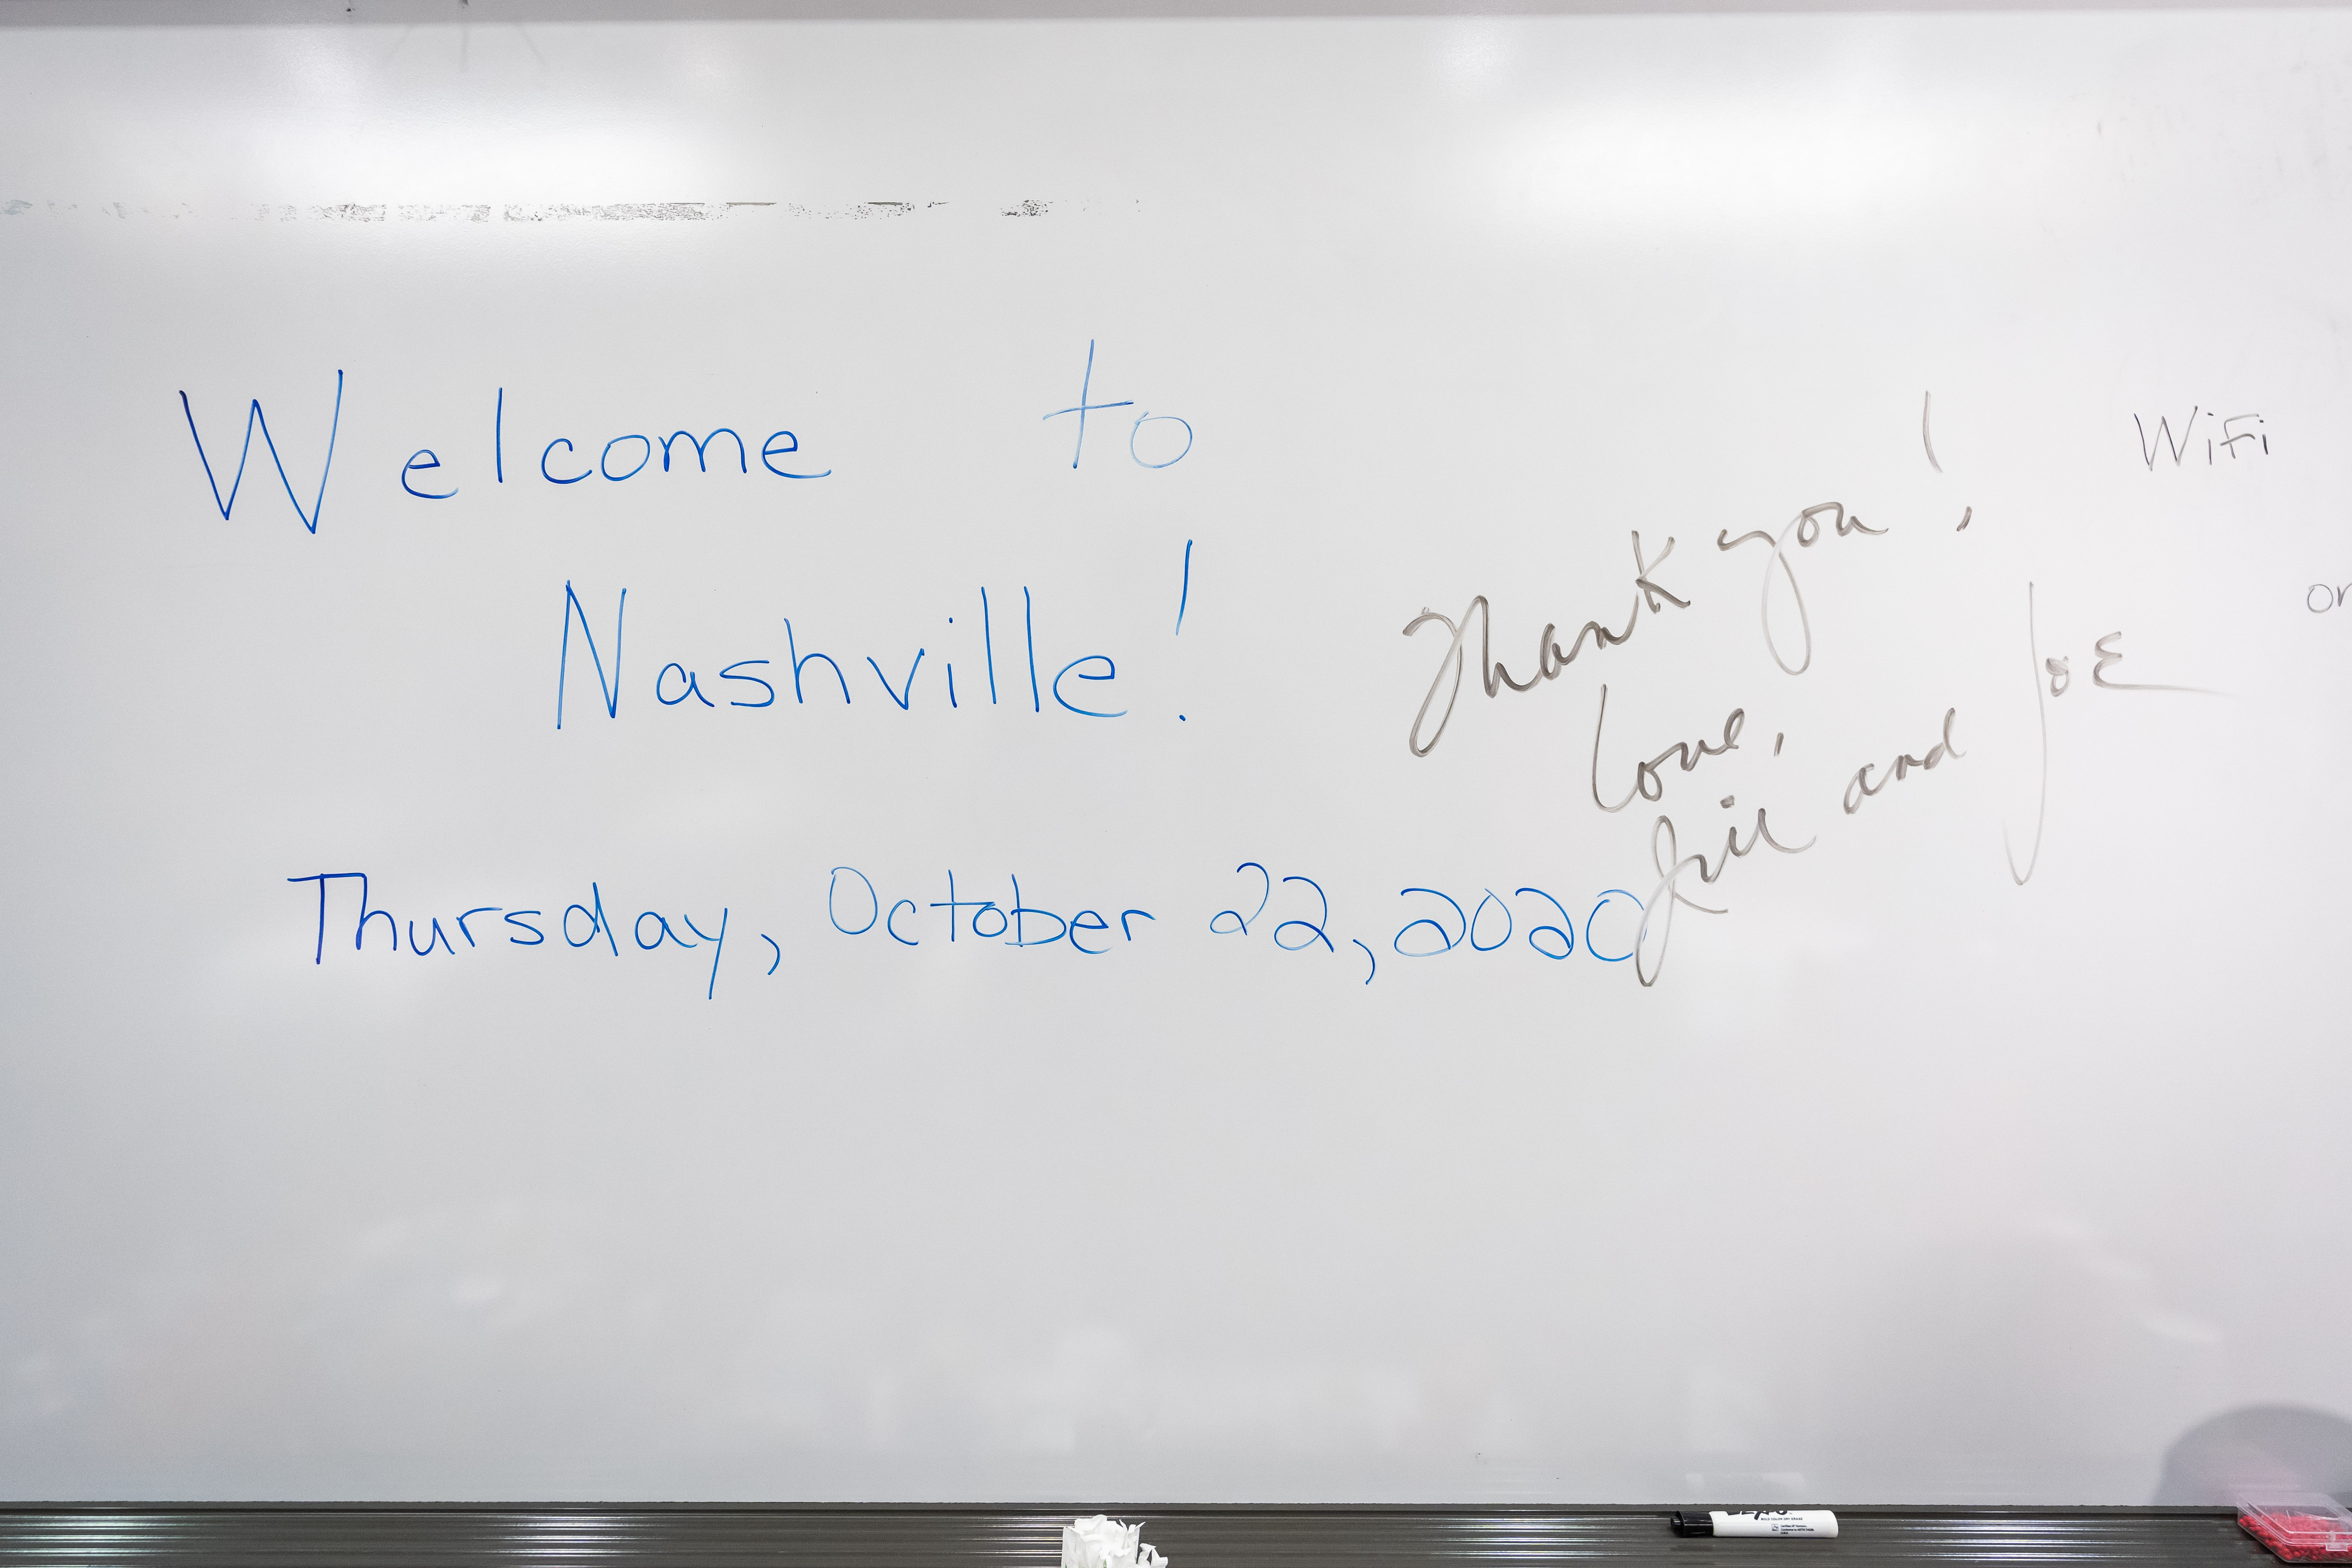 Welcome to
Nashville!
Thursday, October 22, 2020
Thank you!
Love,
Jill and Joe
WiFi
or